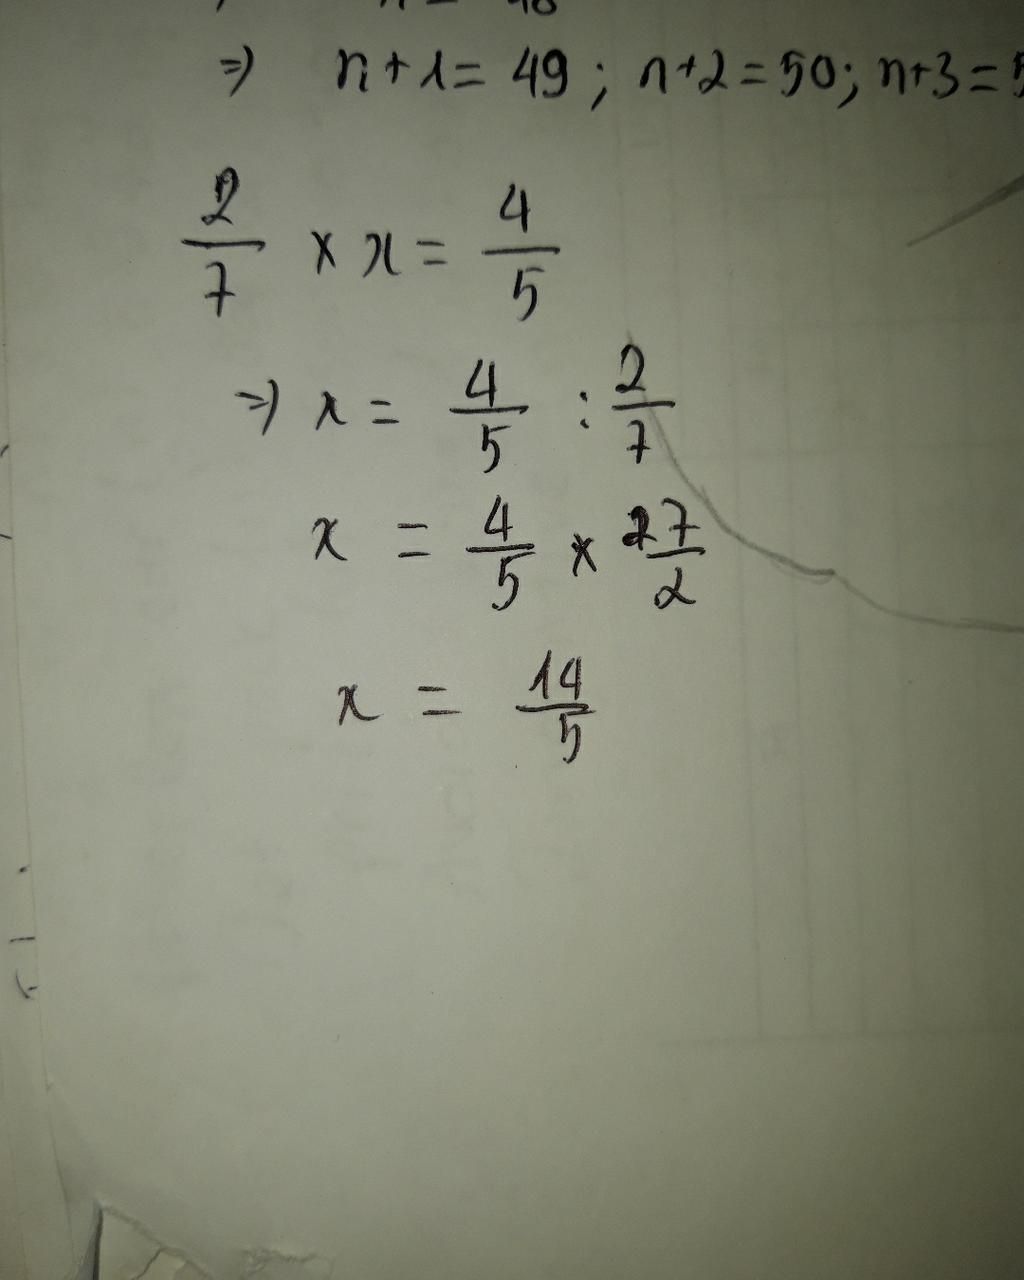 ⇒ n+1 = 49; n+2 = 50; n+3 = 5
2/7 × x = 4/5
⇒ x = 4/5 : 2/7
x = 4/5 × 27/2
x = 14/5